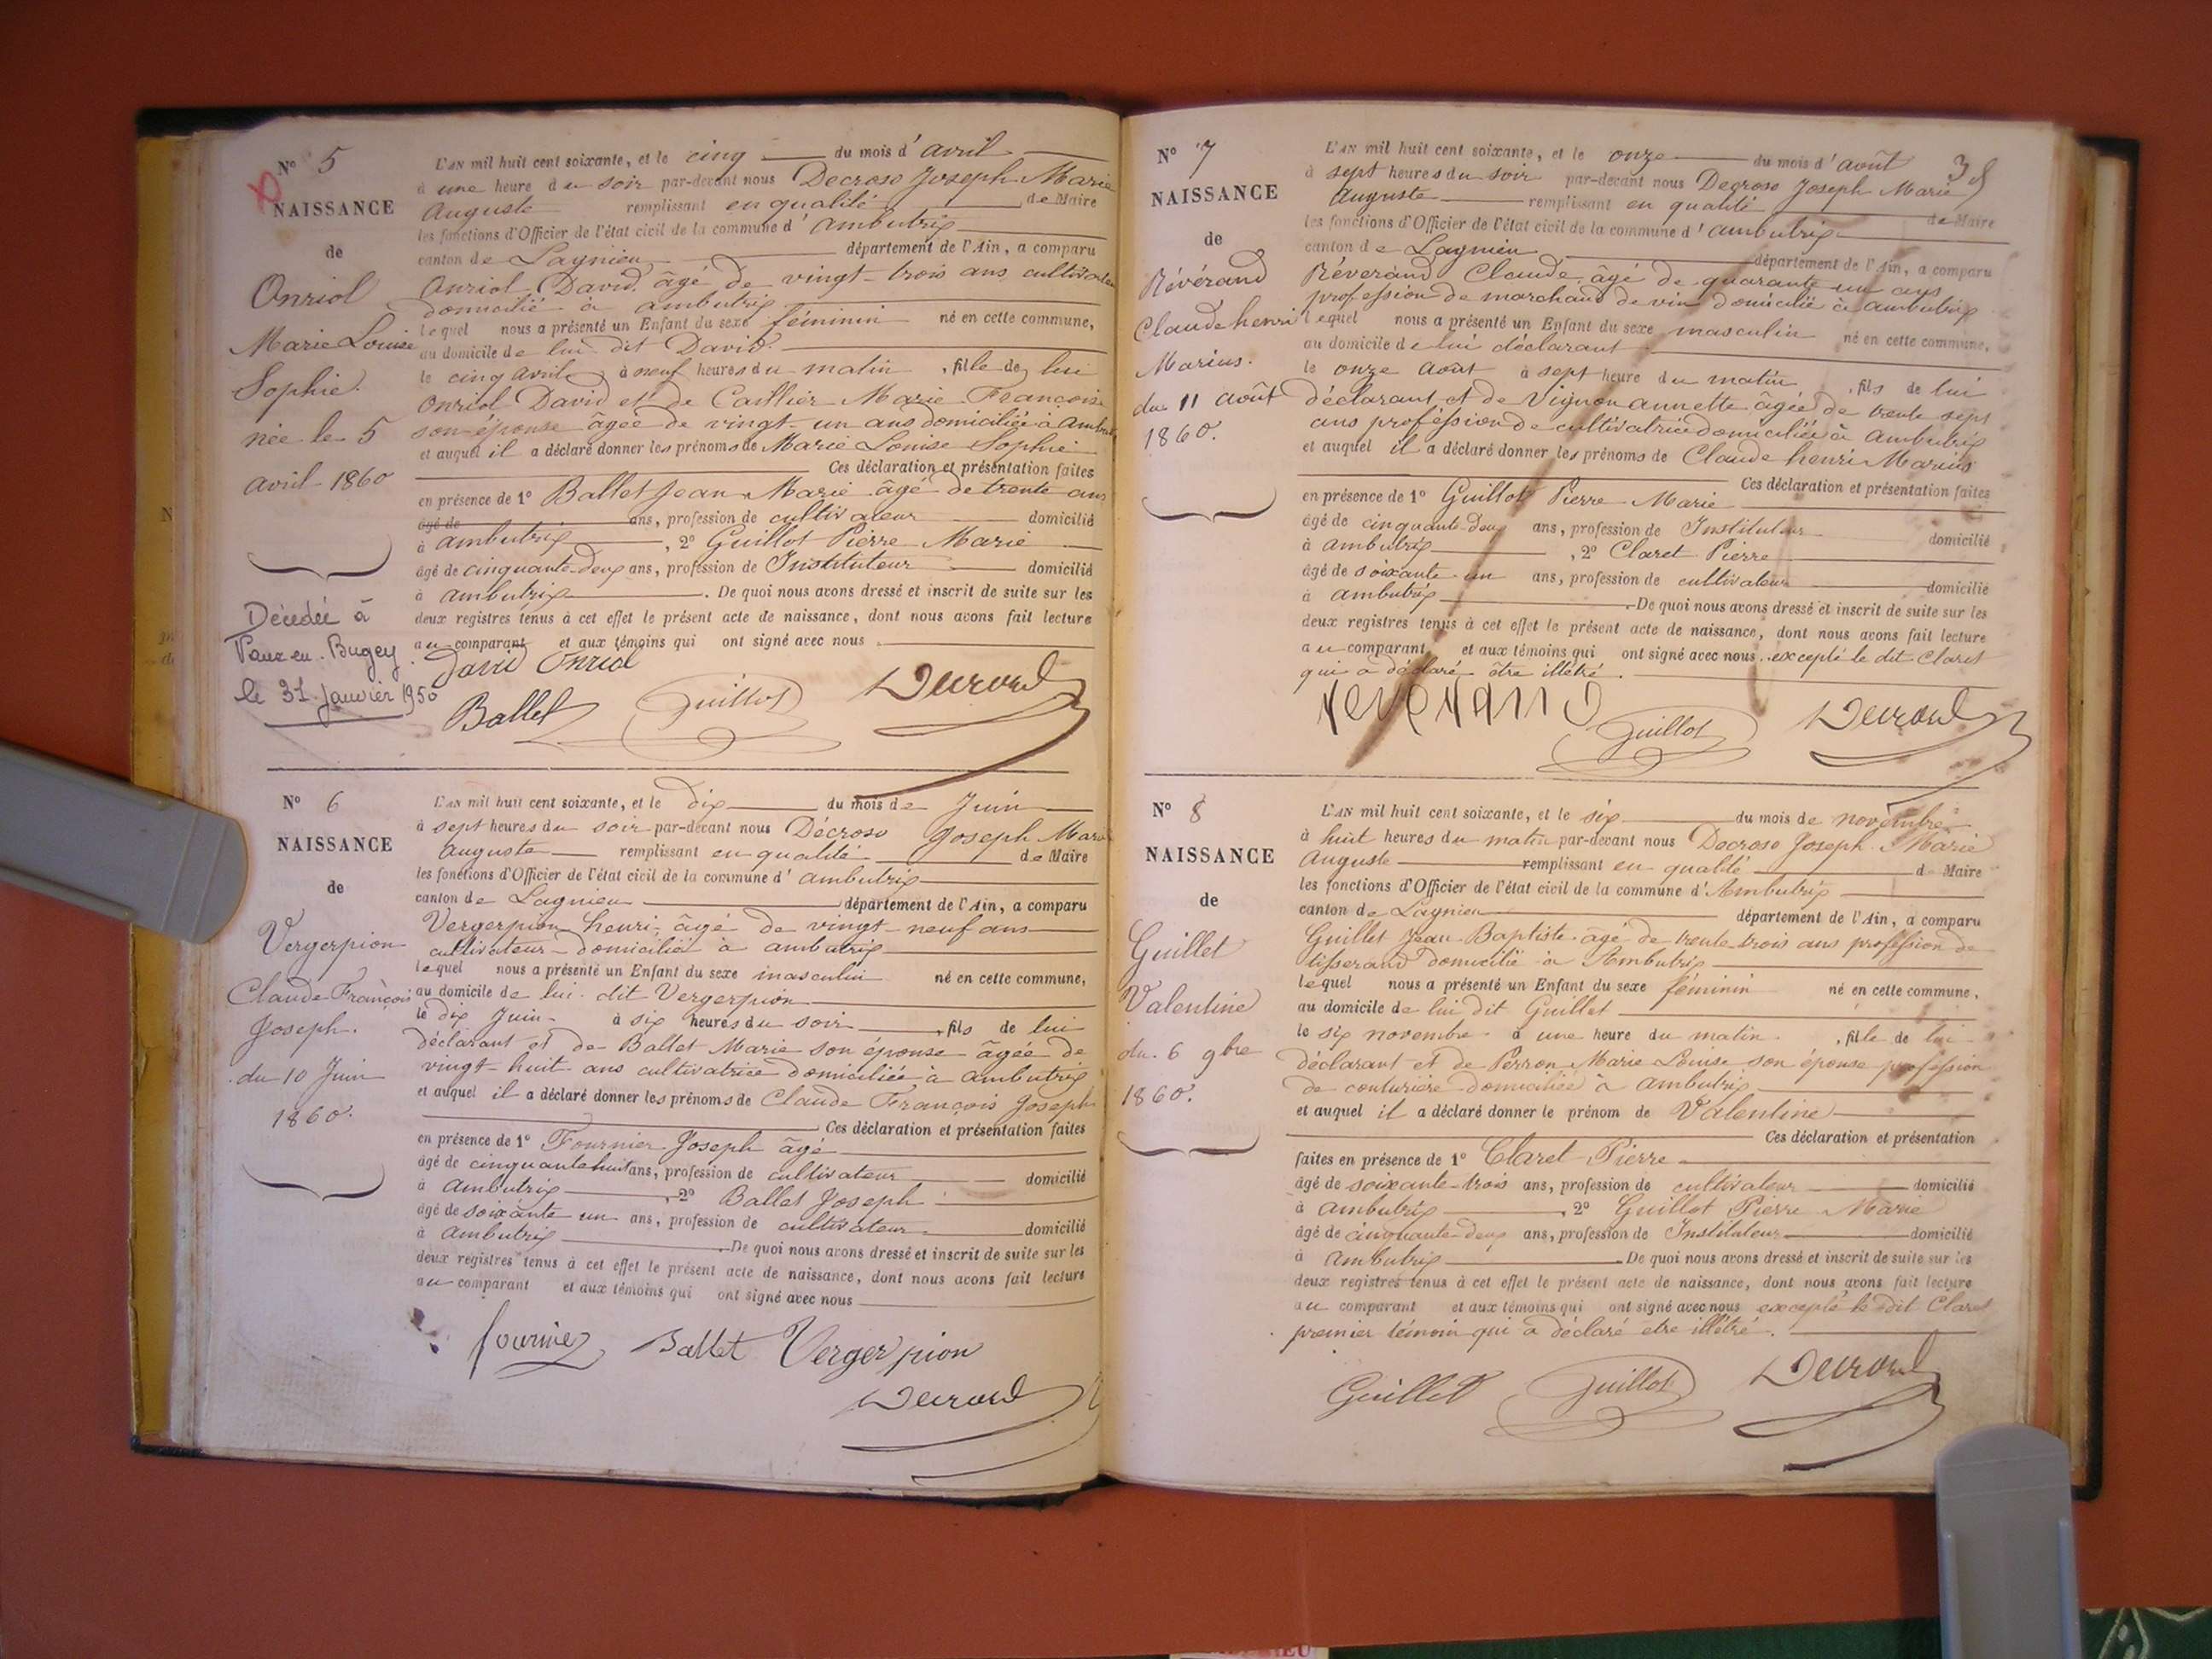 N° 5
NAISSANCE
de
Onriol
Marie Louise
Sophie.
née le 5
avril 1860
Décedée à
Vaux en Bugey
le 31 janvier 1950
L'AN mil huit cent soixante, et le cinq du mois d'avril
à une heure du soir par-devant nous Decroso Joseph Marie
Auguste remplissant en qualité de Maire
les fonctions d'Officier de l'état civil de la commune d'ambutrix
canton de Lagnieu département de l'Ain, a comparu
Onriol David âgé de vingt-trois ans cultivateur
domicilié à ambutrix
lequel nous a présenté un Enfant du sexe féminin né en cette commune,
au domicile de lui dit David.
le cinq avril à neuf heures du matin, fille de lui
Onriol David et de Caillier Marie Françoise
son épouse âgée de vingt-un ans domiciliée à Ambut
et auquel il a déclaré donner les prénoms de Marie Louise Sophie
Ces déclaration et présentation faites
en présence de 1° Ballet Jean Marie âgé de trente ans
âgé de ans, profession de cultivateur domicilié
à ambutrix, 2° Guillot Pierre Marie
âgé de cinquante-deux ans, profession de Instituteur domicilié
à ambutrix. De quoi nous avons dressé et inscrit de suite sur les
deux registres tenus à cet effet le présent acte de naissance, dont nous avons fait lecture
au comparant et aux témoins qui ont signé avec nous.
David Onriol
Ballet Guillot Decroso
N° 6
NAISSANCE
de
Vergerpion
Claude François
Joseph.
du 10 Juin
1860.
L'AN mil huit cent soixante, et le dix du mois de Juin
à sept heures du soir par-devant nous Décroso Joseph Marie
Auguste remplissant en qualité de Maire
les fonctions d'Officier de l'état civil de la commune d'ambutrix
canton de Lagnieu département de l'Ain, a comparu
Vergerpion henri, âgé de vingt-neuf ans
cultivateur domicilié à ambutrix
lequel nous a présenté un Enfant du sexe masculin né en cette commune,
au domicile de lui dit Vergerpion
le dix Juin à six heures du soir, fils de lui
déclarant et de Ballet Marie son épouse âgée de
vingt-huit ans cultivatrice domiciliée à ambutrix
et auquel il a déclaré donner les prénoms de Claude François Joseph
Ces déclaration et présentation faites
en présence de 1° Fournier Joseph âgé
âgé de cinquante huit ans, profession de cultivateur domicilié
à ambutrix, 2° Ballet Joseph
âgé de soixante un ans, profession de cultivateur domicilié
à ambutrix. De quoi nous avons dressé et inscrit de suite sur les
deux registres tenus à cet effet le présent acte de naissance, dont nous avons fait lecture
au comparant et aux témoins qui ont signé avec nous
fournier Ballet Vergerpion
Decroso
38
N° 7
NAISSANCE
de
Révérand
Claude henri
Marius.
du 11 août
1860.
L'AN mil huit cent soixante, et le onze du mois d'août
à sept heures du soir par-devant nous Decroso Joseph Marie
Auguste remplissant en qualité de Maire
les fonctions d'Officier de l'état civil de la commune d'ambutrix
canton de Lagnieu département de l'Ain, a comparu
Réverand Claude âgé de quarante un ans
profession de marchand de vin domicilié à ambutrix
lequel nous a présenté un Enfant du sexe masculin né en cette commune,
au domicile de lui déclarant
le onze Août à sept heure du matin, fils de lui
déclarant et de Vignon annette âgée de trente sept
ans proféssion de cultivatrice domiciliée à ambutrix
et auquel il a déclaré donner les prénoms de Claude henri Marius
Ces déclaration et présentation faites
en présence de 1° Guillot Pierre Marie
âgé de cinquante-deux ans, profession de Instituteur domicilié
à ambutrix, 2° Claret Pierre
âgé de soixante-un ans, profession de cultivateur domicilié
à ambutrix. De quoi nous avons dressé et inscrit de suite sur les
deux registres tenus à cet effet le présent acte de naissance, dont nous avons fait lecture
au comparant et aux témoins qui ont signé avec nous excepté le dit Claret
qui a déclaré être illétré.
reverand Guillot Decroso
N° 8
NAISSANCE
de
Guillet
Valentine
du 6 9bre
1860.
L'AN mil huit cent soixante, et le six du mois de novembre
à huit heures du matin par-devant nous Decroso Joseph Marie
Auguste remplissant en qualité de Maire
les fonctions d'Officier de l'état civil de la commune d'Ambutrix
canton de Lagnieu département de l'Ain, a comparu
Guillet Jean-Baptiste âgé de trente-trois ans profession de
tisserand domicilié à Ambutrix
lequel nous a présenté un Enfant du sexe féminin né en cette commune,
au domicile de lui dit Guillet
le six novembre à une heure du matin, fille de lui
déclarant et de Perron Marie Louise son épouse profession
de couturière domiciliée à ambutrix
et auquel il a déclaré donner le prénom de Valentine
Ces déclaration et présentation
faites en présence de 1° Claret Pierre
âgé de soixante-trois ans, profession de cultivateur domicilié
à ambutrix, 2° Guillot Pierre Marie
âgé de cinquante-deux ans, profession de Instituteur domicilié
à ambutrix. De quoi nous avons dressé et inscrit de suite sur les
deux registres tenus à cet effet le présent acte de naissance, dont nous avons fait lecture
au comparant et aux témoins qui ont signé avec nous excepté le dit Claret
premier témoin qui a déclaré etre illétré.
Guillet Guillot Decroso